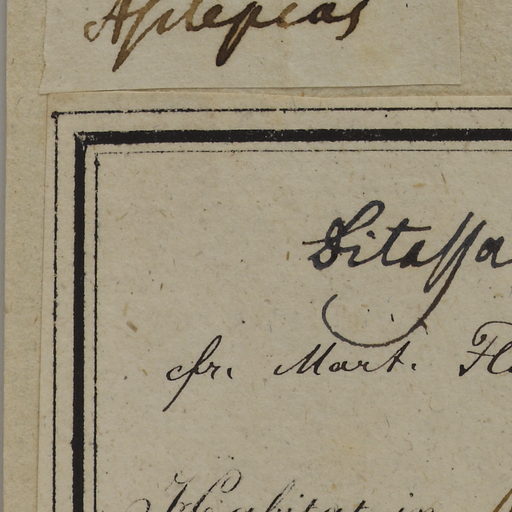 Asclepias
Ditassa
cfr. Mart. Fl
Habitat in